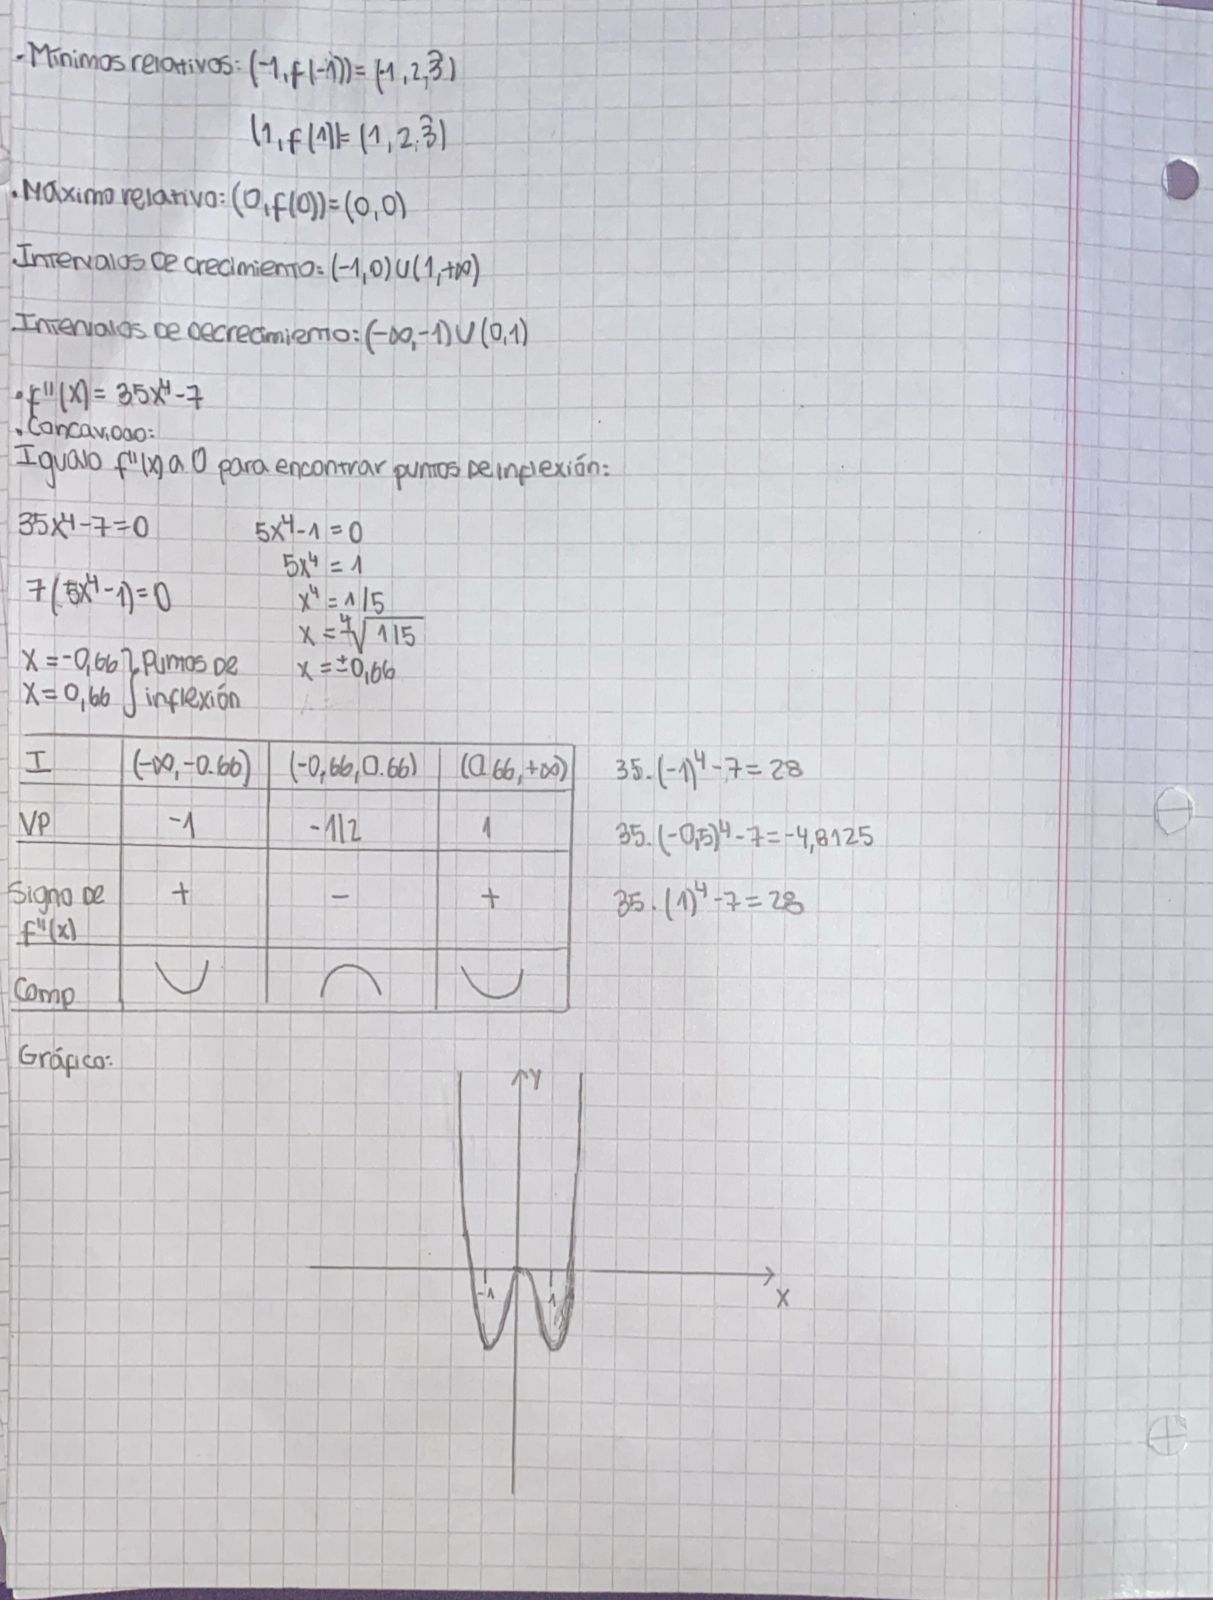 · Mínimos relativos: (-1, f(-1)) = (-1, 2,3̂)
(1, f(1)) = (1, 2,3̂)
· Máximo relativo: (0, f(0)) = (0,0)
Intervalos de crecimiento: (-1,0) U (1,+∞)
Intervalos de decrecimiento: (-∞,-1) U (0,1)
· f''(x) = 35x⁴-7
· Concavidad:
Igualo f''(x) a 0 para encontrar puntos de inflexión:
35x⁴-7=0
7(5x⁴-1)=0
x=-0,66 } Puntos de
x=0,66 } inflexión
5x⁴-1=0
5x⁴=1
x⁴=1/5
x=⁴√1/5
x=±0,66
I (-∞,-0.66) (-0,66,0.66) (0.66,+∞)
VP -1 -1/2 1
Signo de + - +
f''(x)
Comp ∪ ∩ ∪
35.(-1)⁴-7=28
35.(-0,5)⁴-7=-4,8125
35.(1)⁴-7=28
Gráfico:
Y
-1 1
X